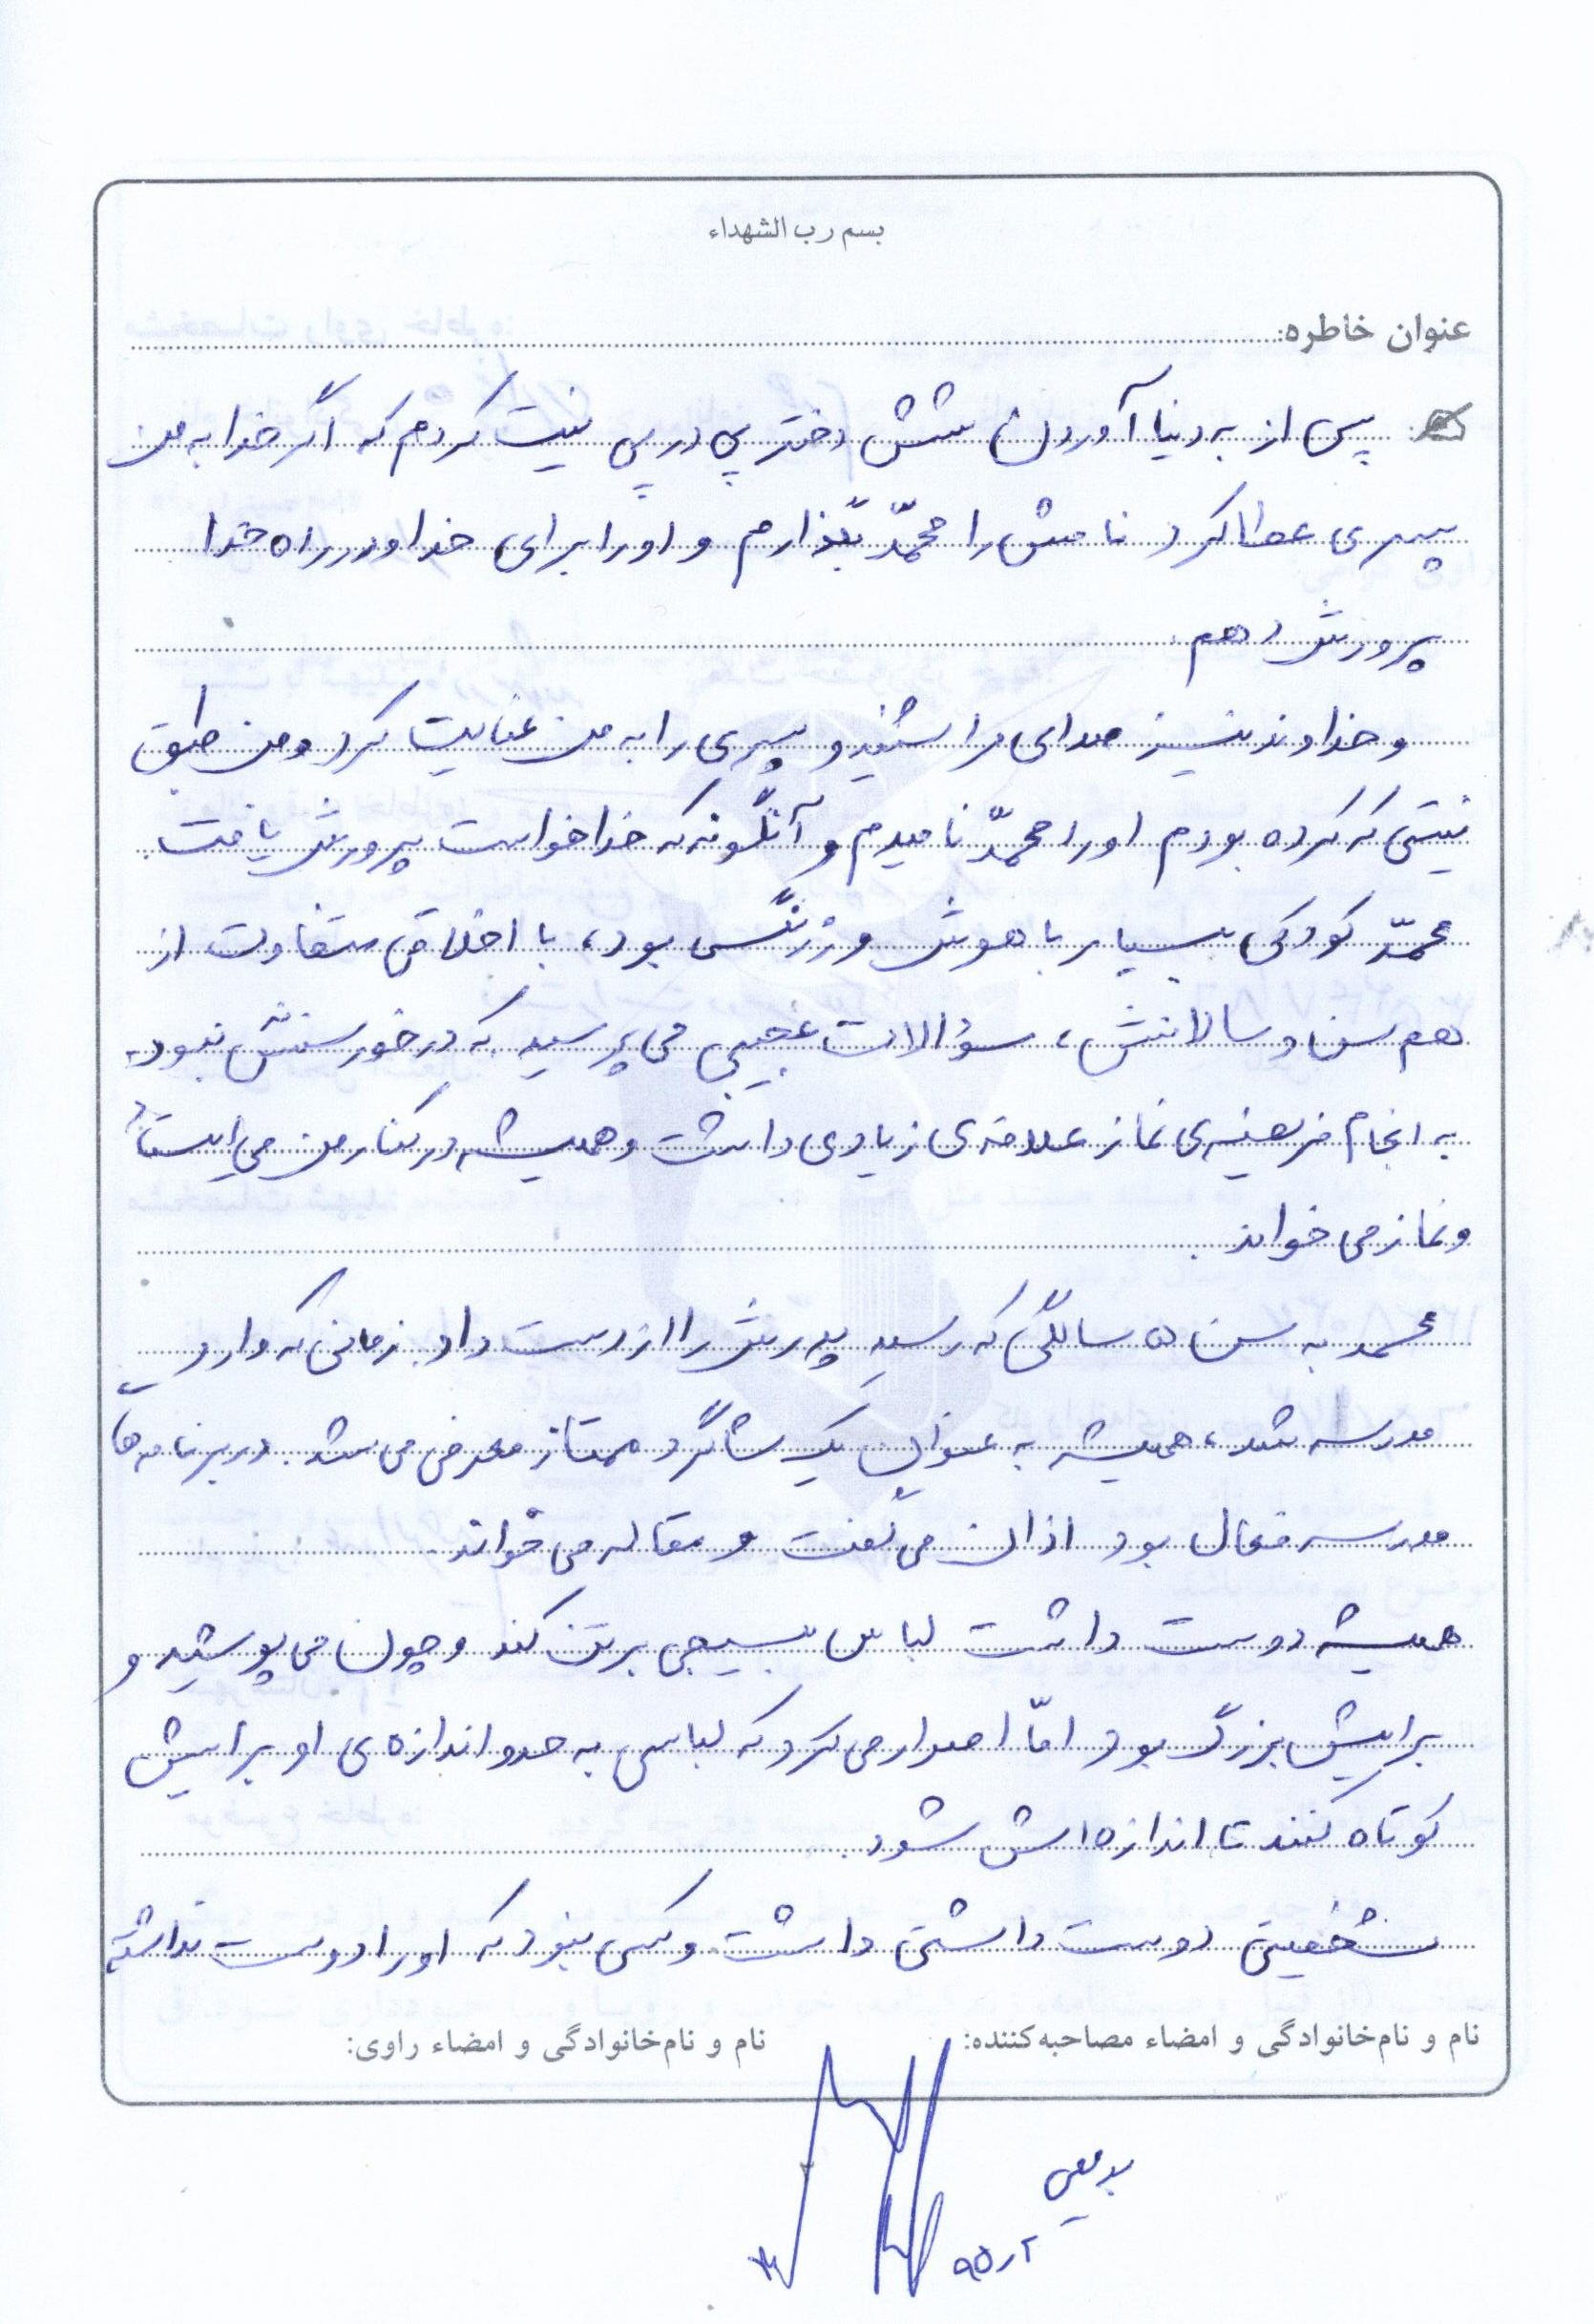 بسم رب الشهداء
عنوان خاطره:
پس از به دنیا آوردن شش دختر پی در پی نیت کردم که اگر خدا به من
پسری عطا کرد نامش را محمّد بگذارم و او را برای خدا و در راه خدا
پرورش دهم.
و خداوند نیز صدای مرا شنید و پسری را به من عنایت کرد و من طبق
نیتی که کرده بودم او را محمّد نامیدم و آنگونه که خدا خواست پرورش یافت.
محمّد کودکی بسیار با هوش و زرنگ بود، با اخلاقی متفاوت از
هم سن و سالانش، سؤالات عجیبی می پرسید که در خور سنش نبود.
به انجام فریضه‌ی نماز علاقه‌ی زیادی داشت و همیشه در کنار من می ایستاد
و نماز می خواند.
محمد به سن ۵ سالگی که رسید پدرش را از دست داد. زمانی که وارد
مدرسه شد، همیشه به عنوان یک شاگرد ممتاز معرفی می شد. در برنامه های
مدرسه فعال بود اذان می گفت و مقاله می خواند.
همیشه دوست داشت لباس بسیجی برتن کند و چون می پوشید و
برایش بزرگ بود امّا اصرار می کرد که لباسی به حد و اندازه‌ی او برایش
کوتاه کنند تا اندازه اش شود.
شخصیتی دوست داشتنی داشت و کسی نبود که او را دوست نداشته
نام و نام‌خانوادگی و امضاء مصاحبه‌کننده:
نام و نام‌خانوادگی و امضاء راوی: